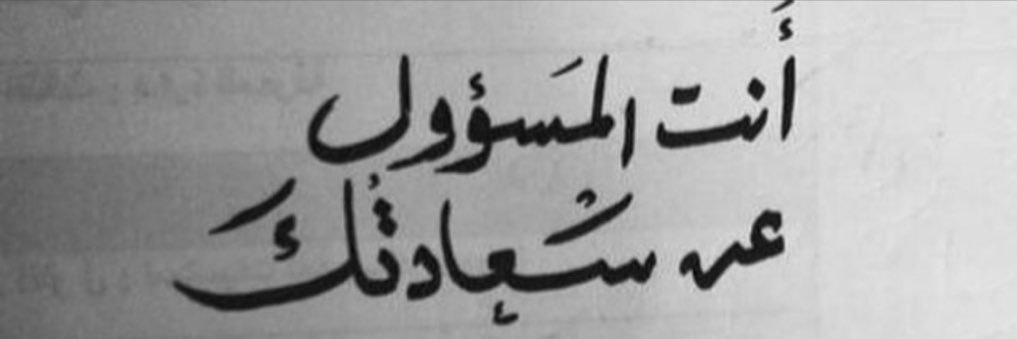 أَنت المَسؤول
عن سَعادتُكَ